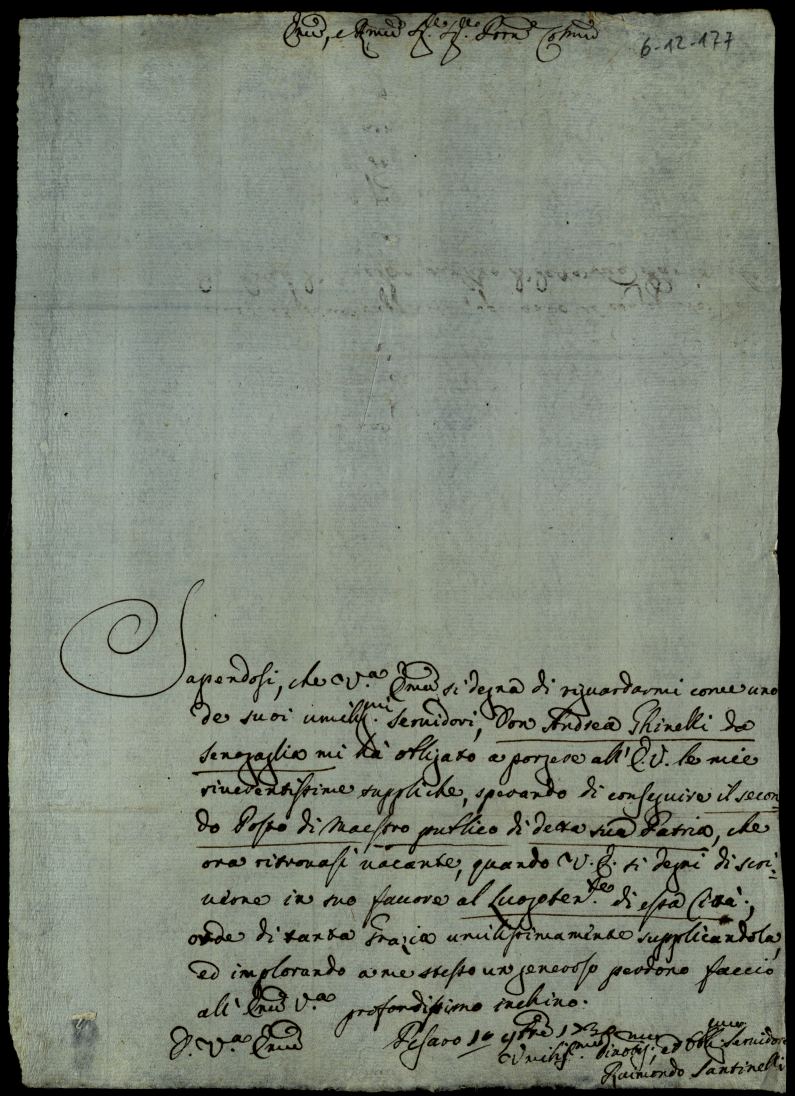 Em̃o, e Rm̃o Sig.re Sig.re Pron̄e Colm̃o
6-12-177
Sapendosi, che V.a Em̃a si degna di riguardarmi come uno
de suoi umiliss.mi servidori, Don Andrea Ghinelli da
Senegaglia mi hà obligato a porgere all' E.V. le mie
riverentissime suppliche, sperando di conseguire il secon-
do Posto di Maestro publico di detta sua Patria, che
ora ritrovasi vacante, quando V.E. si degni di scri-
verne in suo favore al Luogoten.te di essa Città;
onde di tanta Grazia umilissimamente supplicandola,
ed implorando a me stesso un generoso perdono faccio
all' Em̃a V.a profondissimo inchino.
D. V.a Em̃a
Pesaro 10 9bre
Umiliss.mo Divotiss.mo, ed Obl.mo Servidore
Raimondo Santinelli